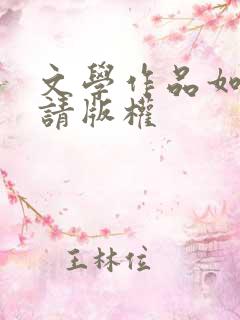 文學作品如
請版權
王林位